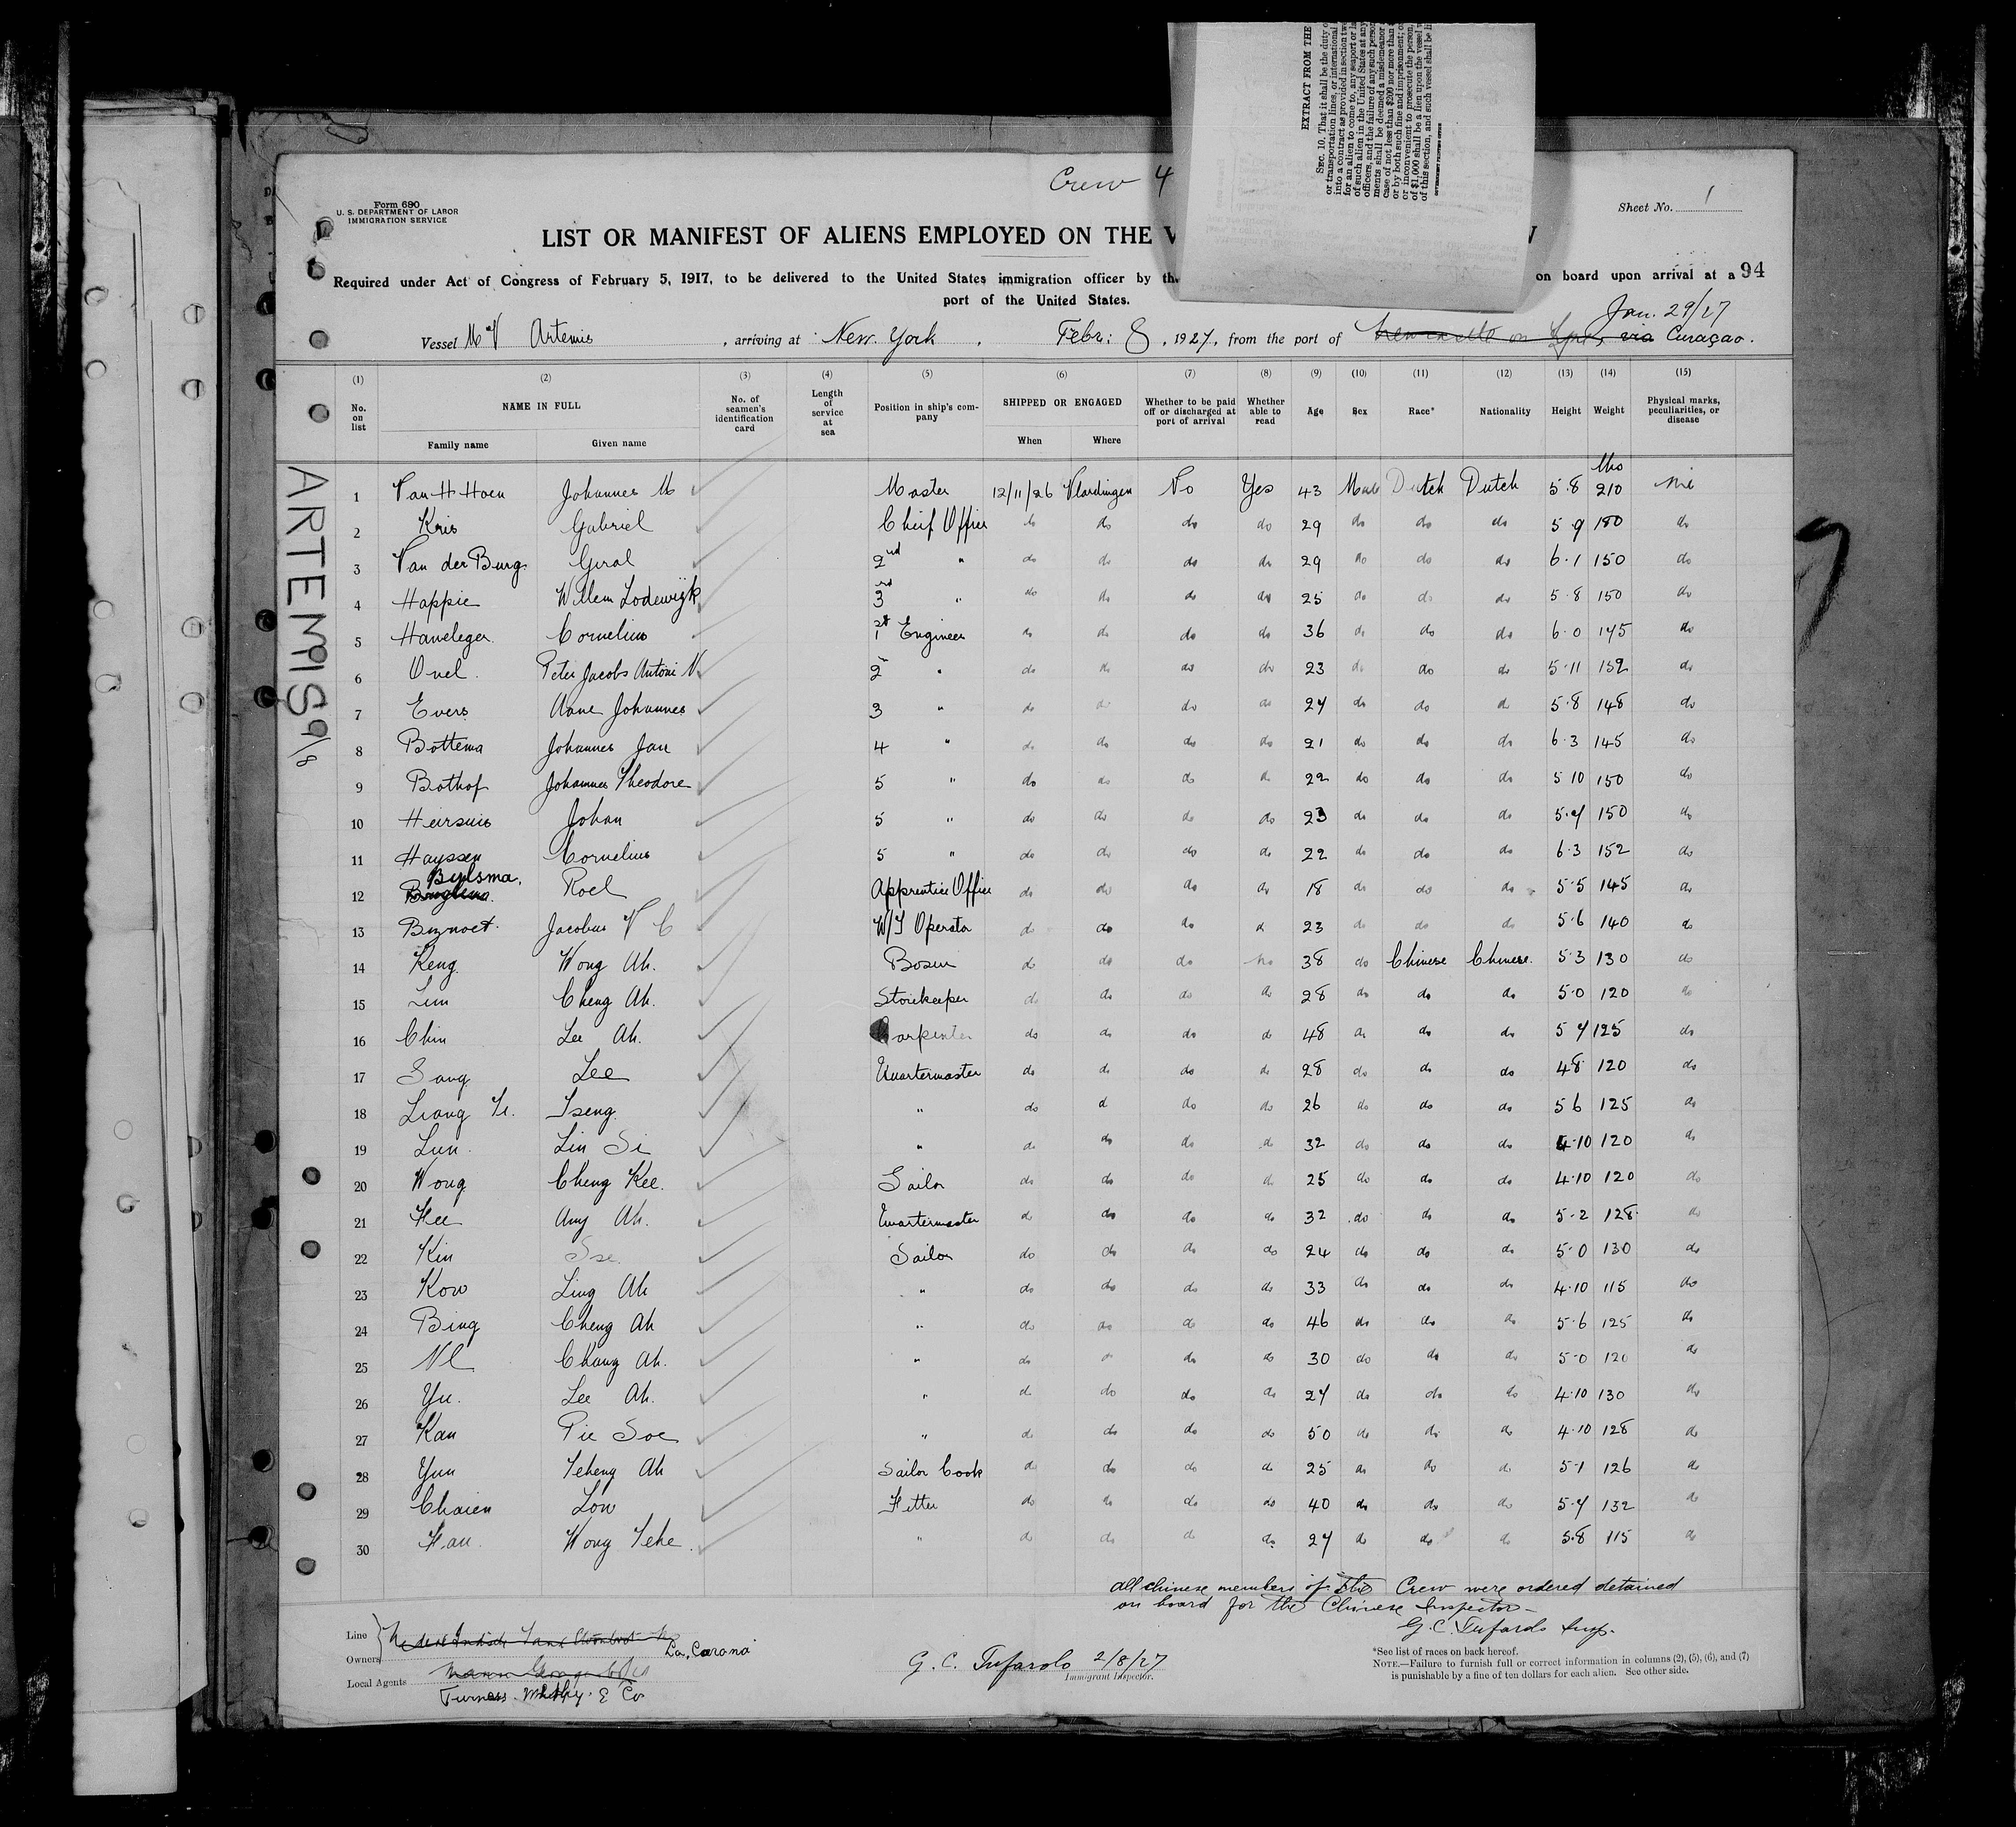 EXTRACT FROM THE
SEC. 10. That it shall be the duty o
or transportation lines, or international
into a contract as provided in section tw
for an alien to come to, any seaport or l
of such alien in the United States at any
officers, and the failure of any such person
ments shall be deemed a misdemeanor
case of not less than $200 nor more than
or by both such fine and imprisonment; o
or inconvenient to prosecute the person,
of $1,000 shall be a lien upon the vessel
of this section, and such vessel shall be li
Crew 4
Form 680
U. S. DEPARTMENT OF LABOR
IMMIGRATION SERVICE
Sheet No. 1
LIST OR MANIFEST OF ALIENS EMPLOYED ON THE V
Required under Act of Congress of February 5, 1917, to be delivered to the United States immigration officer by the on board upon arrival at a 94
port of the United States.
Jan. 29/27
Vessel M V Artemis, arriving at New York, Febr: 8, 1927, from the port of via Curaçao.
(1) (2) (3) (4) (5) (6) (7) (8) (9) (10) (11) (12) (13) (14) (15)
No. on list NAME IN FULL Family name Given name No. of seamen's identification card Length of service at sea Position in ship's company SHIPPED OR ENGAGED When Where Whether to be paid off or discharged at port of arrival Whether able to read Age Sex Race* Nationality Height Weight Physical marks, peculiarities, or disease
ARTEMIS 9/8
lbs
1 Van H Hoen Johannes M Master 12/11/26 Vlardingen No Yes 43 Male Dutch Dutch 5.8 210 nil
2 Kris Gabriel Chief Officer do do do do 29 do do do 5 9 180 do
3 Van der Burg Geral 2nd " do do do do 29 do do do 6.1 150 do
4 Happie Willem Lodewijk 3rd " do do do do 25 do do do 5.8 150 do
5 Haneleger Cornelius 1st Engineer do do do do 36 do do do 6.0 145 do
6 Onel Peter Jacobs Antoni V. 2 " do do do do 23 do do do 5.11 152 do
7 Evers Aane Johannes 3 " do do do do 24 do do do 5.8 148 do
8 Bottema Johannes Jan 4 " do do do do 21 do do do 6.3 145 do
9 Bothof Johannes Theodore 5 " do do do do 22 do do do 5 10 150 do
10 Heirsuis Johan 5 " do do do do 23 do do do 5.4 150 do
11 Hayssen Cornelius 5 " do do do do 22 do do do 6.3 152 do
12 Bylsma. Roel Apprentice Officer do do do do 18 do do do 5.5 145 do
13 Biznoet Jacobus V C W/T Operator do do do do 23 do do do 5.6 140 do
14 Keng Wong Ah. Bosun do do do no 38 do Chinese Chinese. 5.3 130 do
15 Lim Cheng Ah. Storekeeper do do do do 28 do do do 5.0 120 do
16 Chin Lee Ah. Carpenter do do do do 48 do do do 5 4 125 do
17 Sang Lee Quartermaster do do do do 28 do do do 4 8 120 do
18 Liang Tseng " do do do do 26 do do do 5 6 125 do
19 Lun Lin Si " do do do do 32 do do do 4.10 120 do
20 Wong Cheng Kee. Sailor do do do do 25 do do do 4.10 120 do
21 Hee Any Ah. Quartermaster do do do do 32 do do do 5.2 128 do
22 Kin Sze Sailor do do do do 24 do do do 5.0 130 do
23 Kow Ling Ah " do do do do 33 do do do 4.10 115 do
24 Bing Cheng Ah " do do do do 46 do do do 5.6 125 do
25 Chang Ah. " do do do do 30 do do do 5.0 120 do
26 Yu. Lee Ah. " do do do do 24 do do do 4.10 130 do
27 Kan Pie Soe " do do do do 50 do do do 4.10 128 do
28 Yun Tcheng Ah Sailor Cook do do do do 25 do do do 5.1 126 do
29 Chaien Low Fitter do do do do 40 do do do 5.4 132 do
30 Wong Tche " do do do do 24 do do do 5.8 115 do
All chinese members of the Crew were ordered detained
on board for the Chinese Inspector—
G. C. Tufarolo Insp.
Line
Owners La Corona
Local Agents
Furness Withy & Co
G. C. Tufarolo 2/8/27
Immigrant Inspector.
*See list of races on back hereof.
NOTE.—Failure to furnish full or correct information in columns (2), (5), (6), and (7)
is punishable by a fine of ten dollars for each alien. See other side.